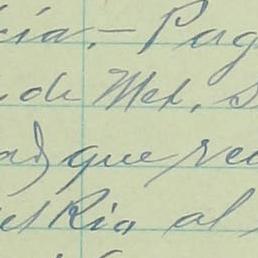 cia.- Pag
de Met, S
ad que rec
el Rio al